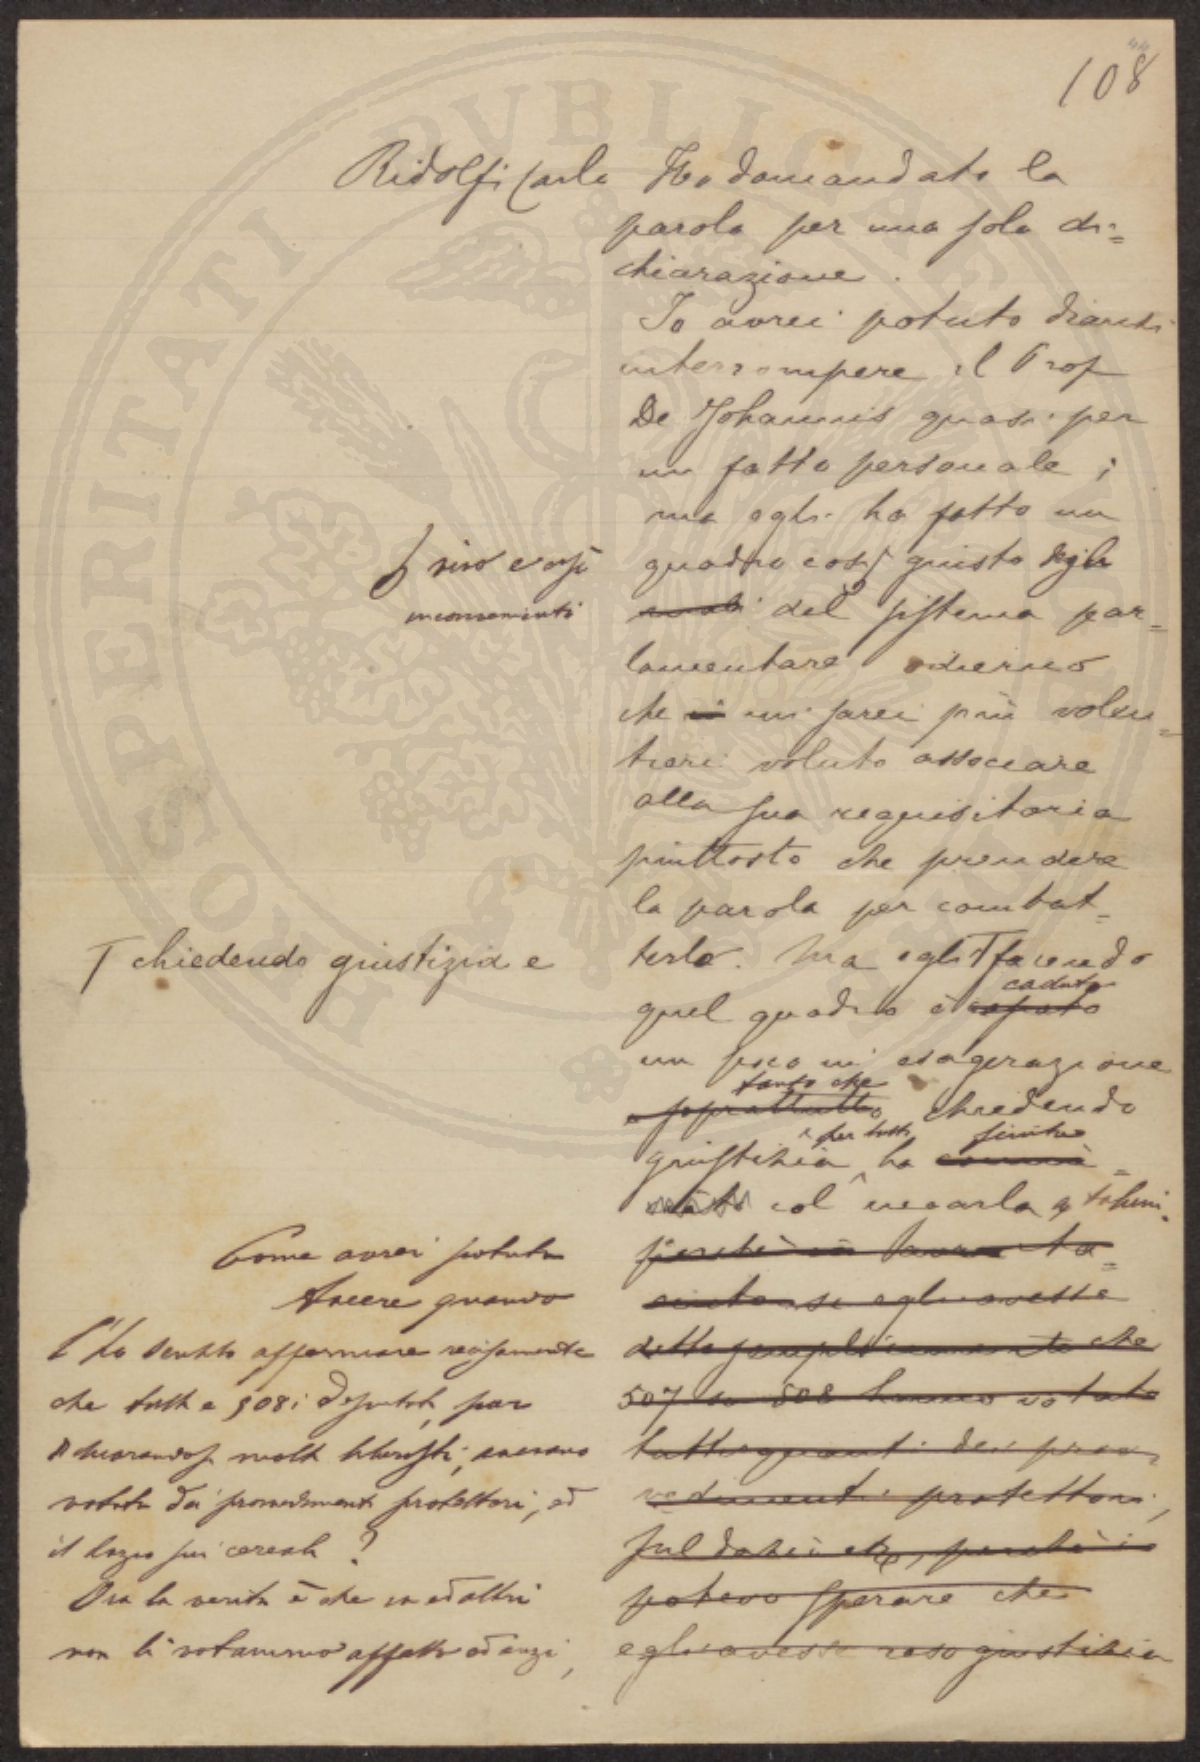 108
Ridolfi Carlo Ho domandato la
parola per una sola di=
chiarazione.
Io avrei potuto dianzi
interrompere il Prof
De Johannis quasi per
un fatto personale;
ma egli ha fatto un
quadro così giusto degli
mali del sistema par=
lamentare odierno
che mi sarei più volen=
tieri voluto associare
alla sua requisitoria
piuttosto che prendere
la parola per combat=
terlo. Ma egli facendo
quel quadro è caduto
un poco in esagerazione
tanto che
e soprattutto chiedendo
per tutti finito
giustizia ha
col negarla a taluni.
perchè io avrei ta=
ciuto se egli avesse
detto semplicemente che
507 su 508 hanno votato
tuttiquanti dei prov=
vedimenti protettori,
sul dazio etc, perchè io
potevo sperare che
egli avesse reso giustizia
vivo e così
inconvenienti
chiedendo giustizia e
Come avrei potuto
tacere quando
l'ho sentito affermare recisamente
che tutti e 508 i deputati, pur
dichiarandosi molti liberisti, avevano
votato dei provvedimenti protettori, ed
il dazio sui cereali?
Ora la verità è che io ed altri
non li votammo affatto ed anzi,
PROSPERITATI PVBLICAE